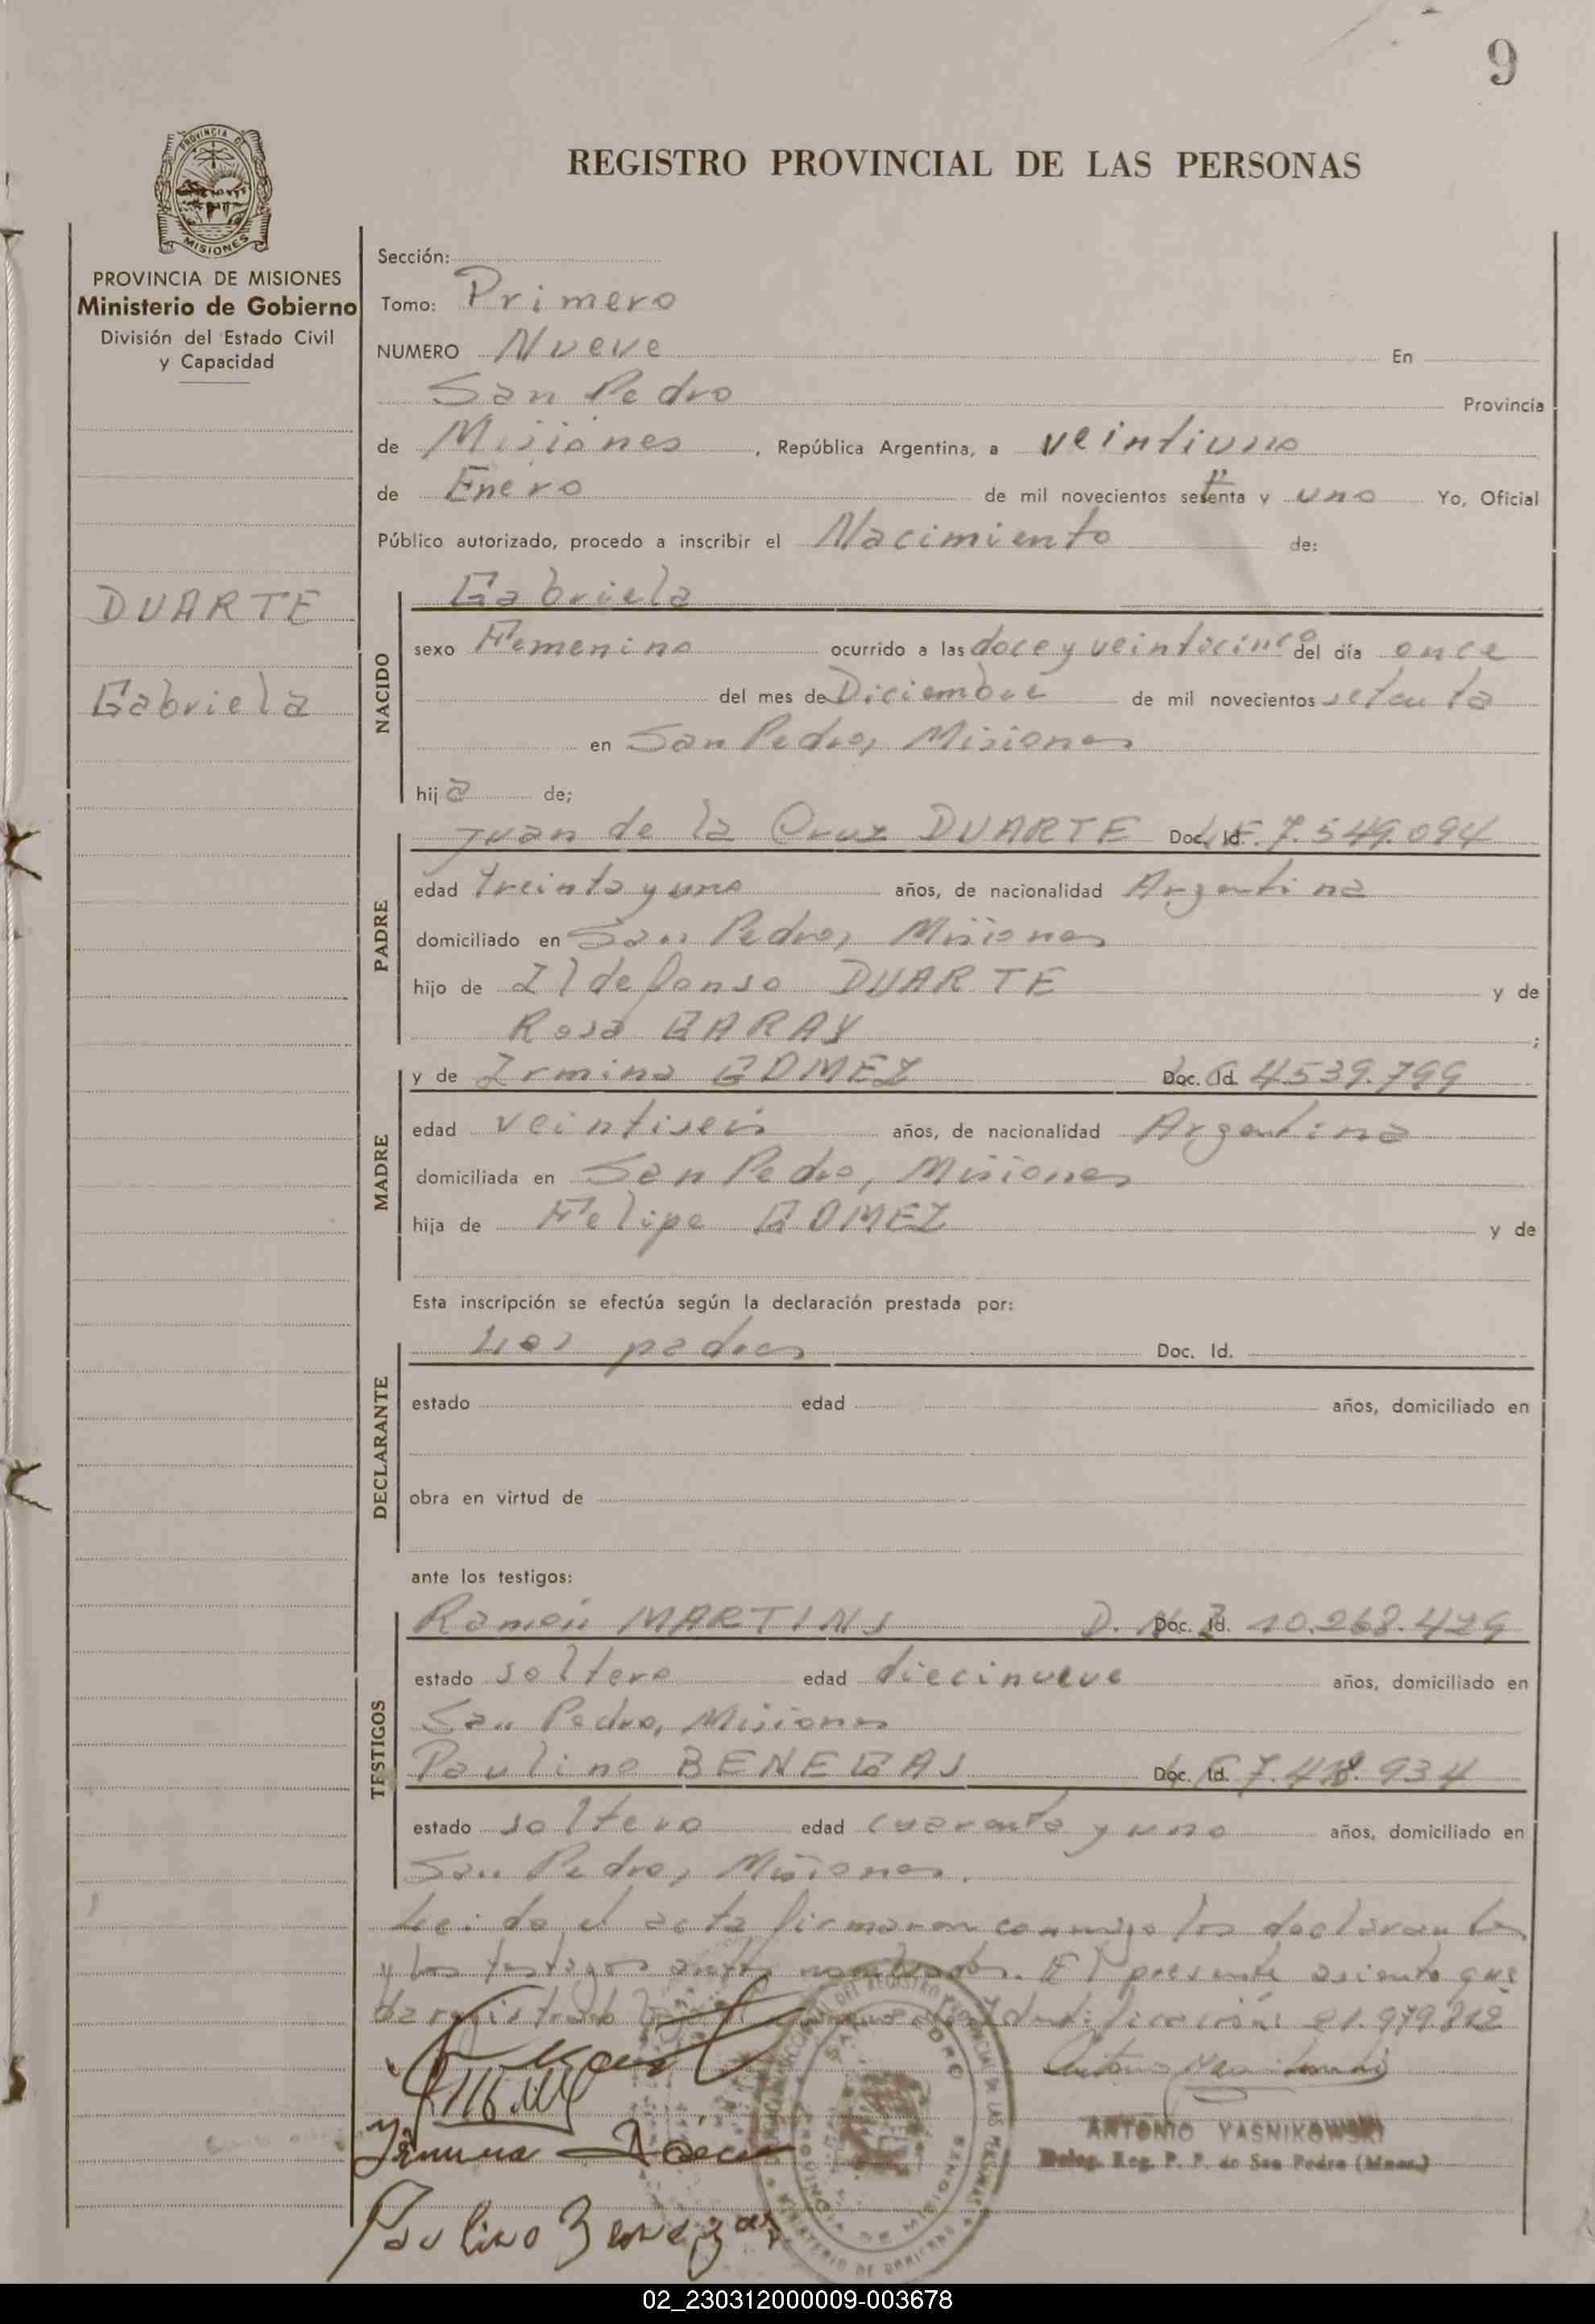 9
PROVINCIA DE
MISIONES
REGISTRO PROVINCIAL DE LAS PERSONAS
PROVINCIA DE MISIONES
Ministerio de Gobierno
División del Estado Civil
y Capacidad
DUARTE
Gabriela
Sección:
Tomo: Primero
NUMERO Nueve En
San Pedro Provincia
de Misiones, República Argentina, a veintiuno
de Enero de mil novecientos setenta y uno Yo, Oficial
Público autorizado, procedo a inscribir el Nacimiento de:
NACIDO
Gabriela
sexo Femenino ocurrido a las doce y veinticinco del día once
del mes de Diciembre de mil novecientos setenta
en San Pedro, Misiones
hija de;
PADRE
Juan de la Cruz DUARTE Doc. Id. L.E. 7.549.094
edad treinta y uno años, de nacionalidad Argentina
domiciliado en San Pedro, Misiones
hijo de Ildefonso DUARTE y de
Rosa GARAY;
MADRE
y de Irmina GOMEZ Doc. Id. L.C. 4539.799
edad veintiseis años, de nacionalidad Argentina
domiciliada en San Pedro, Misiones
hija de Felipe GOMEZ y de
Esta inscripción se efectúa según la declaración prestada por:
DECLARANTE
Los padres Doc. Id.
estado edad años, domiciliado en
obra en virtud de
ante los testigos:
TESTIGOS
Ramón MARTINS D.N.I. Doc. Id. 10.268.429
estado soltero edad diecinueve años, domiciliado en
San Pedro, Misiones
Paulino BENEGAS Doc. Id. L.E. 7.418.934
estado soltero edad cuarenta y uno años, domiciliado en
San Pedro, Misiones.
Leido el acta firmaron conmigo los declarantes
y los testigos antes nombrados. El presente asiento que
da registrado Identificación: 21.979.312
ANTONIO YASNIKOWSKI
Deleg. Reg. P. P. de San Pedro (Mnes.)
Paulino Benegas
02_230312000009-003678